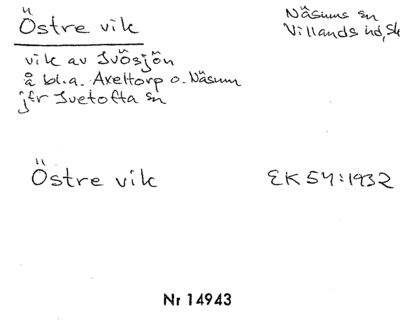 Östre vik
Näsums sn
Villands hd, Sk
vik av Ivösjön
å bl.a. Axeltorp o. Näsum
jfr Ivetofta sn
Östre vik
EK 54:1932
Nr 14943